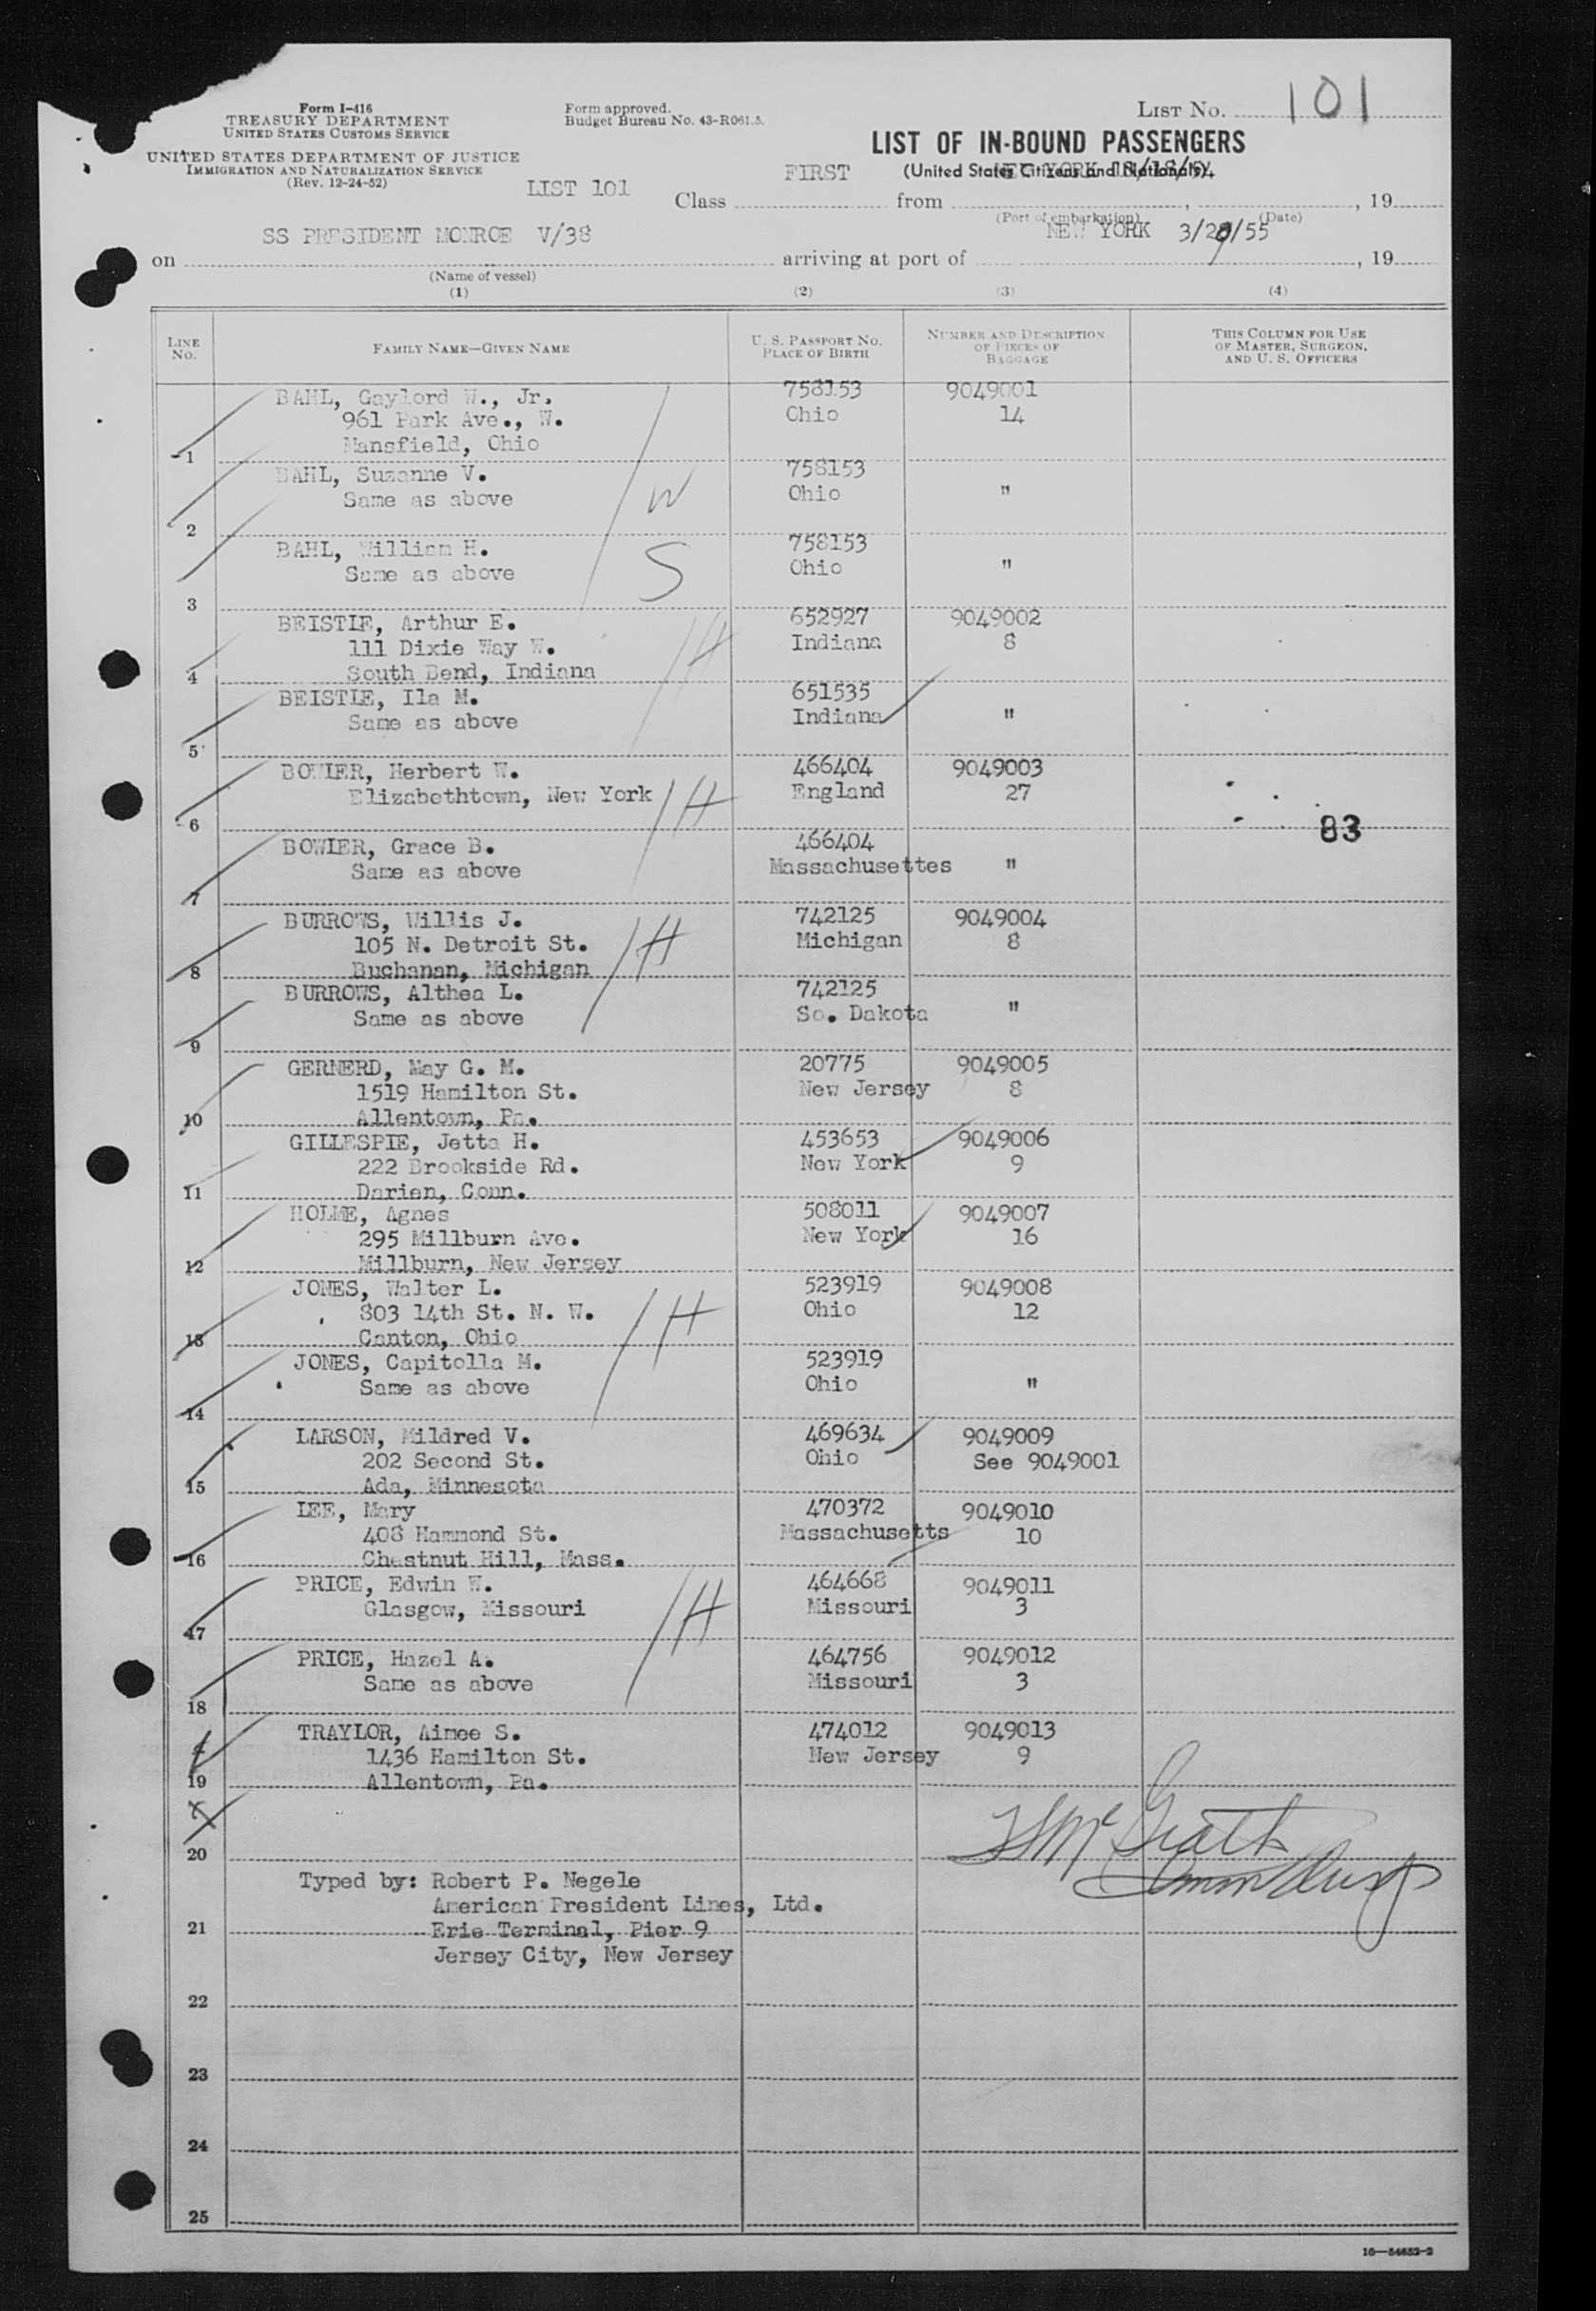 Form I-416
TREASURY DEPARTMENT
UNITED STATES CUSTOMS SERVICE
UNITED STATES DEPARTMENT OF JUSTICE
IMMIGRATION AND NATURALIZATION SERVICE
(Rev. 12-24-52)
Form approved.
Budget Bureau No. 43-R061.5.
LIST No. 101
LIST OF IN-BOUND PASSENGERS
(United States Citizens and Nationals)
LIST 101
Class FIRST from NEW YORK , 19
(Port of embarkation) (Date)
on SS PRESIDENT MONROE V/38 arriving at port of NEW YORK 3/29/55 , 19
(Name of vessel)
(1) (2) (3) (4)
LINE No. FAMILY NAME—GIVEN NAME U. S. PASSPORT No. PLACE OF BIRTH NUMBER AND DESCRIPTION OF PIECES OF BAGGAGE THIS COLUMN FOR USE OF MASTER, SURGEON, AND U. S. OFFICERS
BAHL, Gaylord W., Jr. 758153 9049001
961 Park Ave., W. Ohio 14
1 Mansfield, Ohio
BAHL, Suzanne V. 758153
Same as above W Ohio "
2
BAHL, William H. 758153
Same as above S Ohio "
3
BEISTLE, Arthur E. 652927 9049002
111 Dixie Way W. H Indiana 8
4 South Bend, Indiana
BEISTLE, Ila M. 651535
Same as above Indiana "
5
BOWIER, Herbert W. 466404 9049003
Elizabethtown, New York H England 27
6 83
BOWIER, Grace B. 466404
Same as above Massachusettes "
7
BURROWS, Willis J. 742125 9049004
105 N. Detroit St. H Michigan 8
8 Buchanan, Michigan
BURROWS, Althea L. 742125
Same as above So. Dakota "
9
GERNERD, May G. M. 20775 9049005
1519 Hamilton St. New Jersey 8
10 Allentown, Pa.
GILLESPIE, Jetta H. 453653 9049006
222 Brookside Rd. New York 9
11 Darien, Conn.
HOLME, Agnes 508011 9049007
295 Millburn Ave. New York 16
12 Millburn, New Jersey
JONES, Walter L. 523919 9049008
803 14th St. N. W. H Ohio 12
13 Canton, Ohio
JONES, Capitolla M. 523919
Same as above Ohio "
14
LARSON, Mildred V. 469634 9049009
202 Second St. Ohio See 9049001
15 Ada, Minnesota
LEE, Mary 470372 9049010
408 Hammond St. Massachusetts 10
16 Chestnut Hill, Mass.
PRICE, Edwin W. 464668 9049011
Glasgow, Missouri H Missouri 3
17
PRICE, Hazel A. 464756 9049012
Same as above Missouri 3
18
TRAYLOR, Aimee S. 474012 9049013
1436 Hamilton St. New Jersey 9
19 Allentown, Pa.
20
Typed by: Robert P. Negele
American President Lines, Ltd.
21 Erie Terminal, Pier 9
Jersey City, New Jersey
22
23
24
25